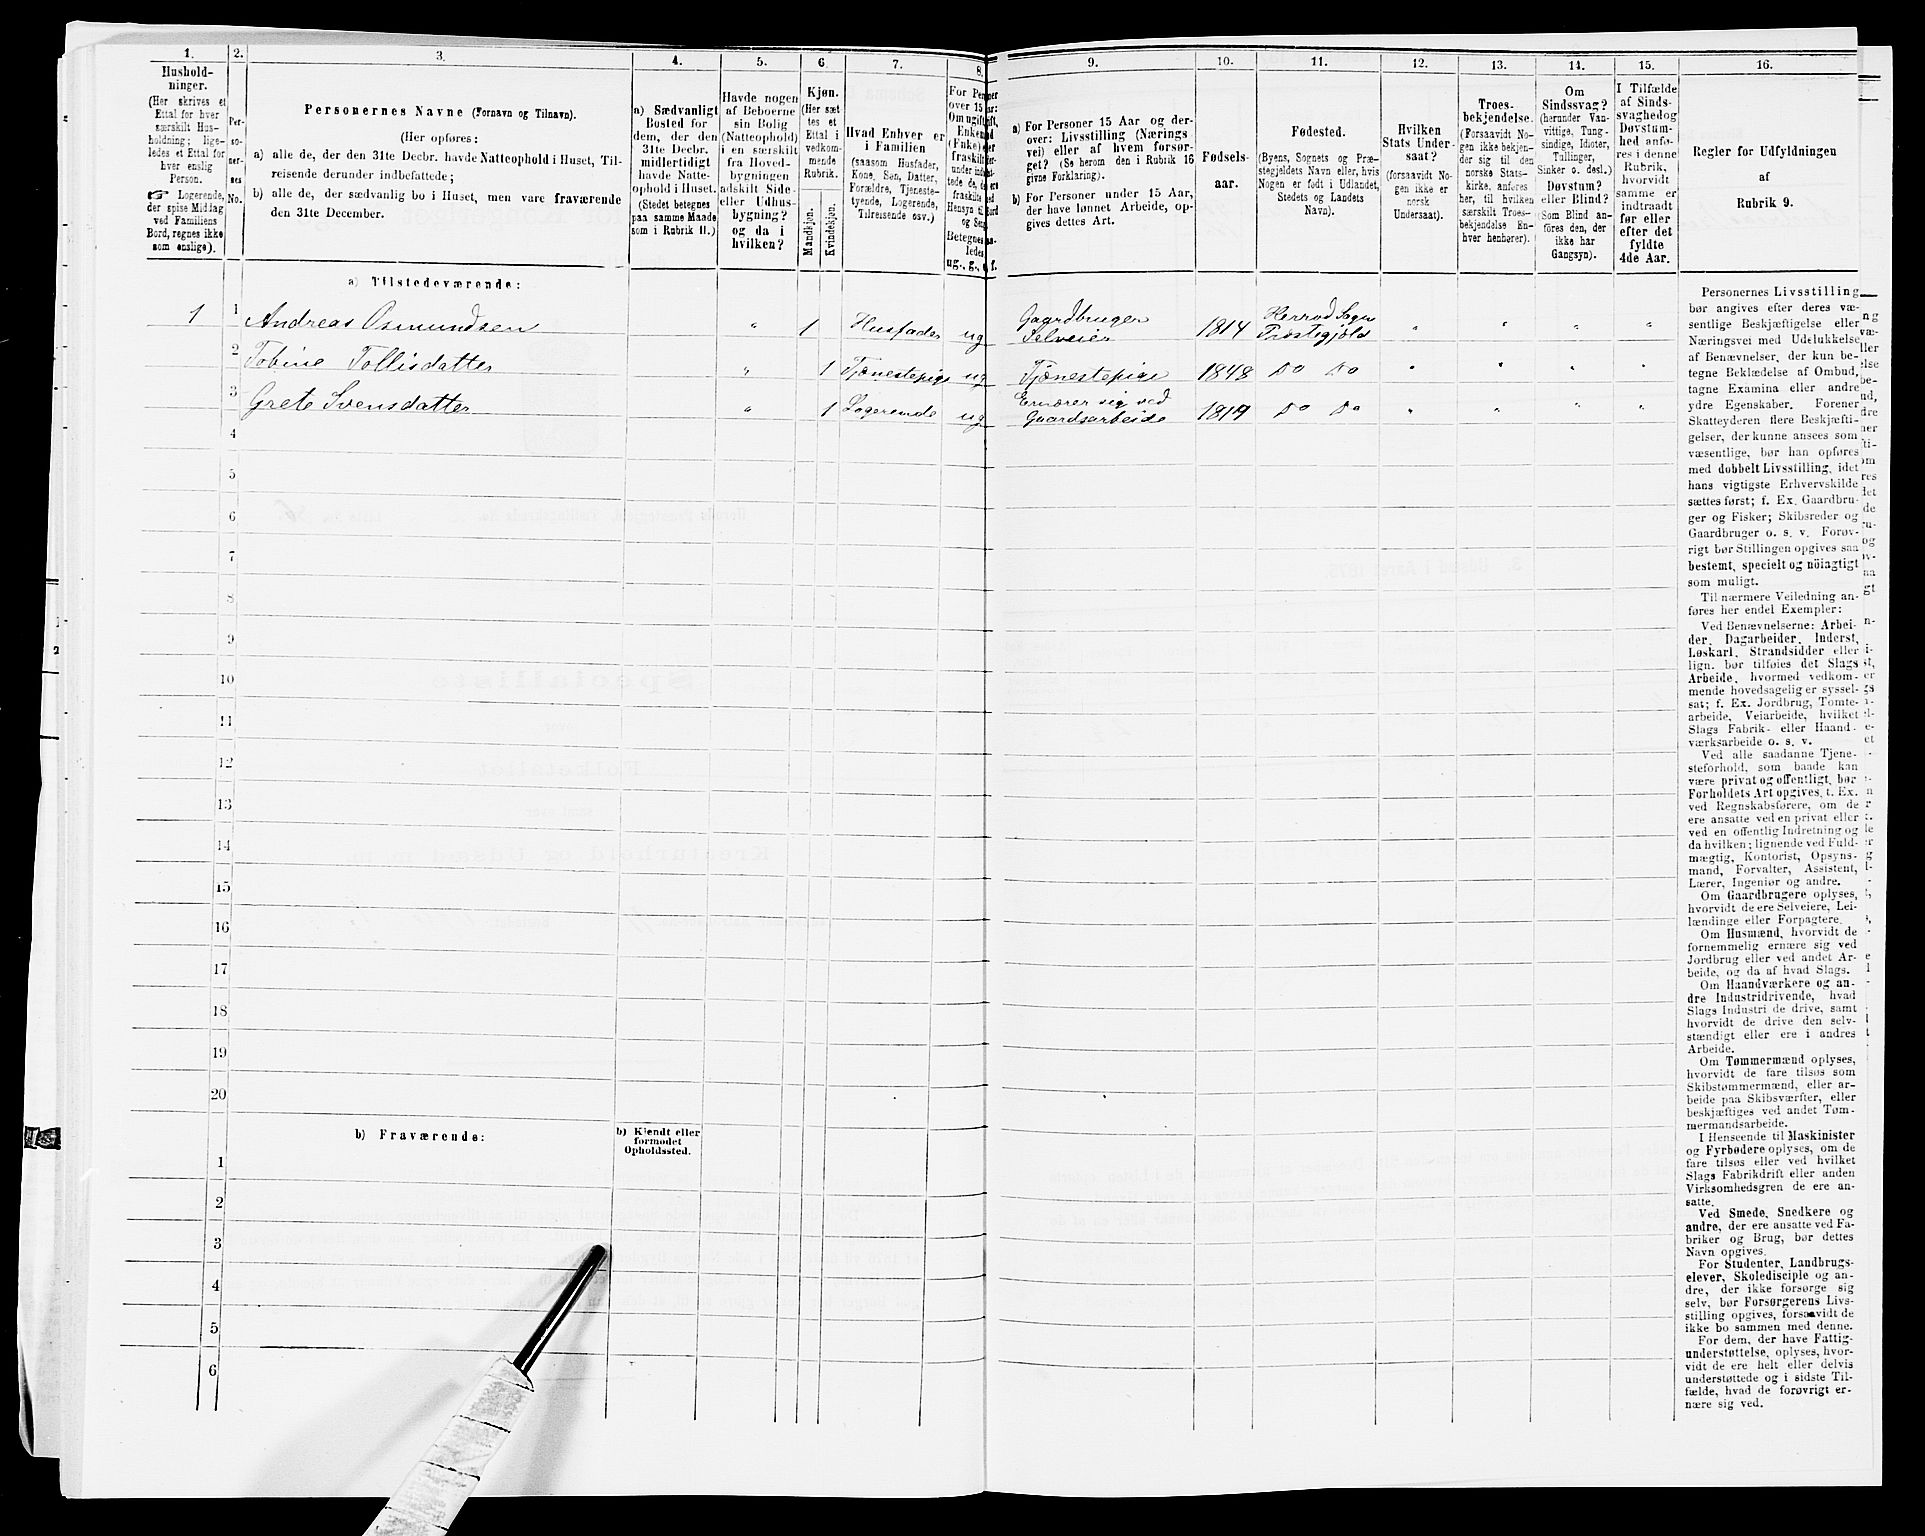 1.
Hushold-
ninger.
(Her skrives et
Ettal for hver
særskilt Hus-
holdning; lige-
ledes et Ettal for
hver enslig
Person.
☞ Logerende,
der spise Middag
ved Familiens
Bord, regnes ikke
som enslige).
2.
Per-
so-
ner-
nes
No.
3.
Personernes Navne (Fornavn og Tilnavn).
(Her opføres:
a) alle de, der den 31te Decbr. havde Natteophold i Huset, Til-
reisende derunder indbefattede;
b) alle de, der sædvanlig bo i Huset, men vare fraværende
den 31te December.
4.
a) Sædvanligt
Bosted for
dem, der den
31te Decbr.
midlertidigt
havde Natte-
ophold i Huset.
(Stedet betegnes
paa samme Maade
som i Rubrik 11.)
5.
Havde nogen
af Beboerne
sin Bolig
(Natteophold)
i en særskilt
fra Hoved-
bygningen
adskilt Side-
eller Udhus-
bygning?
og da i
hvilken?
6.
Kjøn.
(Her sæt-
tes et
Ettal i
vedkom-
mende
Rubrik.
Mandkjøn.
Kvindekjøn.
7.
Hvad Enhver er
i Familien
(saasom Husfader,
Kone, Søn, Datter,
Forældre, Tjeneste-
tyende, Logerende,
Tilreisende osv.)
8.
9.
a) For Personer 15 Aar og der-
over: Livsstilling (Nærings
vei) eller af hvem forsør-
get? (Se herom den i Rubrik 16
givne Forklaring).
b) For Personer under 15 Aar,
der have lønnet Arbeide, op-
gives dettes Art.
10.
Fødsels-
aar.
11.
Fødested.
(Byens, Sognets og Præ-
stegjeldets Navn eller, hvis
Nogen er født i Udlandet,
Stedets og Landets
Navn).
12.
Hvilken
Stats Under-
saat?
(forsaavidt No-
gen ikke er
norsk
Undersaat).
13.
Troes-
bekjendelse.
(Forsaavidt No-
gen ikke bekjen-
der sig til den
norske Stats-
kirke, anføres
her, til hvilken
særskilt Troes-
bekjendelse En-
hver henhører).
14.
Om
Sindssvag?
(herunder Van-
vittige, Tung-
sindige, Idioter,
Tullinger,
Sinker o. desl.)
Døvstum?
eller Blind?
(Som Blind an-
føres den, der
ikke har
Gangsyn).
15.
I Tilfælde
af Sinds-
svaghed og
Døvstum-
hed anfø-
res i denne
Rubrik,
hvorvidt
samme er
indtraadt
før eller
efter det
fyldte
4de Aar.
16.
Regler for Udfyldningen
af
Rubrik 9.
a) Tilstedeværende:
1 1 Andreas Osmundsen " 1 Husfader ug Gaardbruger Selveier 1814 Herred Sogn Præstegjeld " " " "
2 Tobine Tollisdatter " 1 Tjenestepige ug Tjenestepige 1848 Do Do " " " "
3 Grete Svensdatter " 1 Logerende ug Ernærer sig ved Gaardsarbeide 1819 Do Do " " " "
4
5
6
7
8
9
10
11
12
13
14
15
16
17
18
19
20
b) Fraværende:
b) Kjendt eller
formodet
Opholdssted.
1
2
3
4
5
6
Personernes Livsstilling
bør angives efter deres væ-
sentlige Beskjæftigelse eller
Næringsvei med Udelukkelse
af Benævnelser, der kun be-
tegne Beklædelse af Ombud,
tagne Examina eller andre
ydre Egenskaber. Forener
Skatteyderen flere Beskjæfti-
gelser, der kunne ansees som
væsentlige, bør han opføres
med dobbelt Livsstilling, idet
hans vigtigste Erhvervskilde
sættes først; f. Ex. Gaardbru-
ger og Fisker; Skibsreder og
Gaardbruger o. s. v. Forøv-
rigt bør Stillingen opgives saa
bestemt, specielt og nöiagtigt
som muligt.
Til nærmere Veiledning an-
føres her endel Exempler:
Ved Benævnelserne: Arbei-
der, Dagarbeider, Inderst,
Løskarl, Strandsidder eller
lign. bør tilføies det Slags
Arbeide, hvormed vedkom-
mende hovedsagelig er syssel-
sat; f. Ex. Jordbrug, Tomte-
arbeide, Veiarbeide, hvilket
Slags Fabrik- eller Haand-
værksarbeide o. s. v.
Ved alle saadanne Tjene-
steforhold, som baade kan
være privat og offentligt, bør
Forholdets Art opgives, t. Ex.
ved Regnskabsførere, om de
ere ansatte ved en privat eller
ved en offentlig Indretning og
da hvilken; lignende ved Fuld-
mægtig, Kontorist, Opsyns-
mand, Forvalter, Assistent,
Lærer, Ingeniør og andre.
Om Gaardbrugere oplyses,
hvorvidt de ere Selveiere, Lei-
lændinge eller Forpagtere.
Om Husmænd, hvorvidt de
fornemmelig ernære sig ved
Jordbrug eller ved andet Ar-
beide, og da af hvad Slags.
Om Haandværkere og an-
dre Industridrivende, hvad
Slags Industri de drive, samt
hvorvidt de drive den selv-
stændigt eller ere i andres
Arbeide.
Om Tømmermænd oplyses,
hvorvidt de fare tilsøs som
Skibstømmermænd, eller ar-
beide paa Skibsværfter, eller
beskjæftiges ved andet Tøm-
mermandsarbeide.
I Henseende til Maskinister
og Fyrbødere oplyses, om de
fare tilsøs eller ved hvilket
Slags Fabrikdrift eller anden
Virksomhedsgren de ere an-
satte.
Ved Smede, Snedkere og
andre, der ere ansatte ved Fa-
briker og Brug, bør dettes
Navn opgives.
For Studenter, Landbrugs-
elever, Skoledisciple og an-
dre, der ikke forsørge sig
selv, bør Forsørgerens Livs-
stilling opgives, forsaavidt de
ikke bo sammen med denne.
For dem, der have Fattig-
understøttelse, oplyses, hvor-
vidt de ere helt eller delvis
understøttede og i sidste Til-
fælde, hvad de forøvrigt er-
nære sig ved.